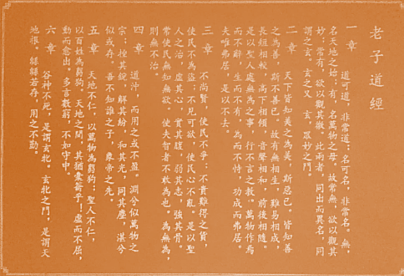 老子道經
一章　道可道，非常道。名可名，非常名。無，
名天地之始；有，名萬物之母。故常無，欲以觀其
妙；常有，欲以觀其徼。此兩者，同出而異名，同
謂之玄。玄之又玄，眾妙之門。
二章　天下皆知美之為美，斯惡已。皆知善
之為善，斯不善已。故有無相生，難易相成，
長短相較，高下相傾，音聲相和，前後相隨。
是以聖人處無為之事，行不言之教。萬物作焉
而不辭，生而不有，為而不恃，功成而弗居。
夫唯弗居，是以不去。
三章　不尚賢，使民不爭；不貴難得之貨，
使民不為盜；不見可欲，使民心不亂。是以聖
人之治，虛其心，實其腹，弱其志，強其骨。
常使民無知無欲，使夫智者不敢為也。為無為，
則無不治。
四章　道沖，而用之或不盈，淵兮似萬物之
宗；挫其銳，解其紛，和其光，同其塵，湛兮
似或存。吾不知誰之子，象帝之先。
五章　天地不仁，以萬物為芻狗；聖人不仁，
以百姓為芻狗。天地之間，其猶橐籥乎！虛而不屈，
動而愈出。多言數窮，不如守中。
六章　谷神不死，是謂玄牝。玄牝之門，是謂天
地根。綿綿若存，用之不勤。